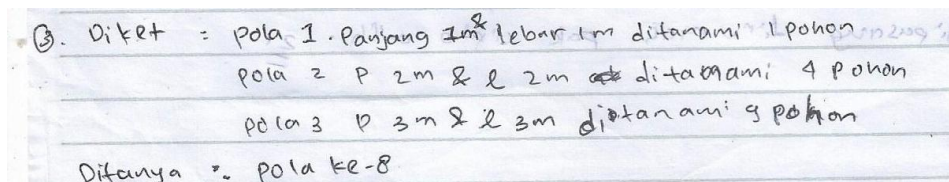 ③. Diket : pola 1. Panjang 1m & lebar 1m ditanami 1 pohon
pola 2 P 2m & l 2m ditanami 4 pohon
pola 3 P 3m & l 3m ditanami 9 pohon
Ditanya : pola ke-8